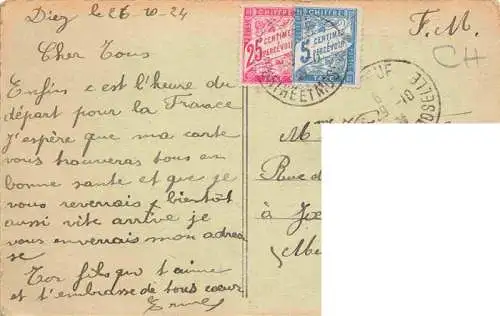 Diez le 26 10 - 24
F. M.
CH
Cher Tous
Enfin c'est l'heure du
départ pour la France
J'espère que ma carte
vous trouveras tous en
bonne santé et que je
vous reverrais bientôt
aussi vite arrivé je
vous enverrais mon adres
se
Ton fils qui t'aime
et t'embrasse de tous cœur
CHIFFRE
25 CENTIMES
À PERCEVOIR
CHIFFRE
5 CENTIMES
À PERCEVOIR
TAXE
Rue d
à